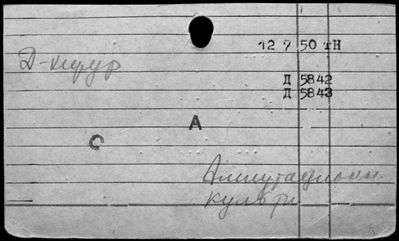 12 7 50 тн
Д-хирур
Д 5842
Д 5843
А
С
Ампутационн
культи